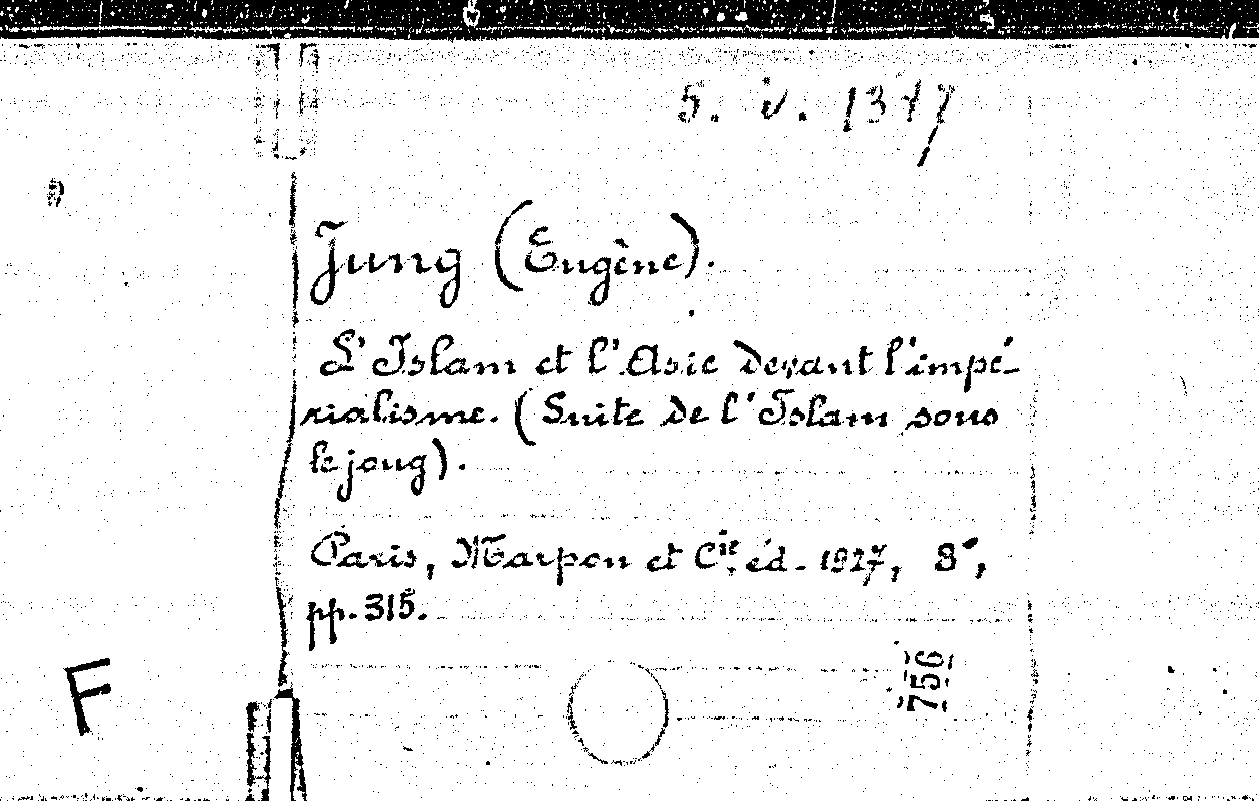 5. v. 1317
Jung (Eugène).
L'Islam et l'Asie devant l'impé-
rialisme. (Suite de l'Islam sous
le joug).
Paris, Marpon et Cie, éd. 1927, 8°,
pp. 315.
756
F